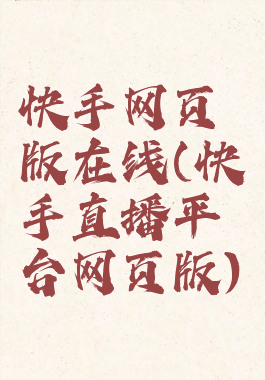 快手网页
版在线(快
手直播平
台网页版)